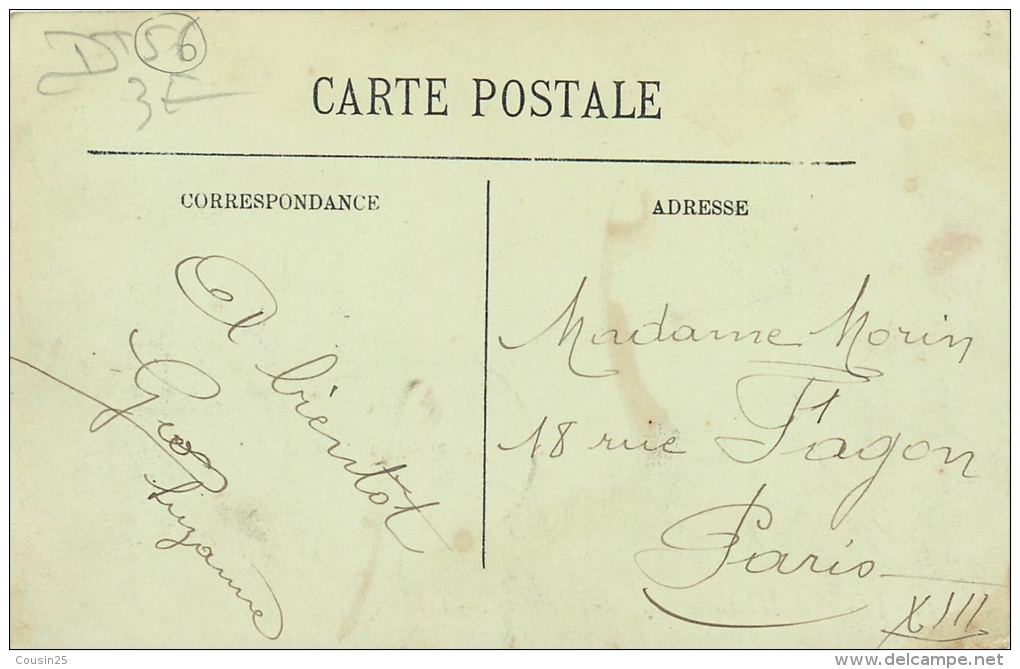 56
3E
CARTE POSTALE
CORRESPONDANCE
ADRESSE
A bientot
Suzanne
Madame Morin
18 rue Fagon
Paris
XIII
Cousin25
www.delcampe.net